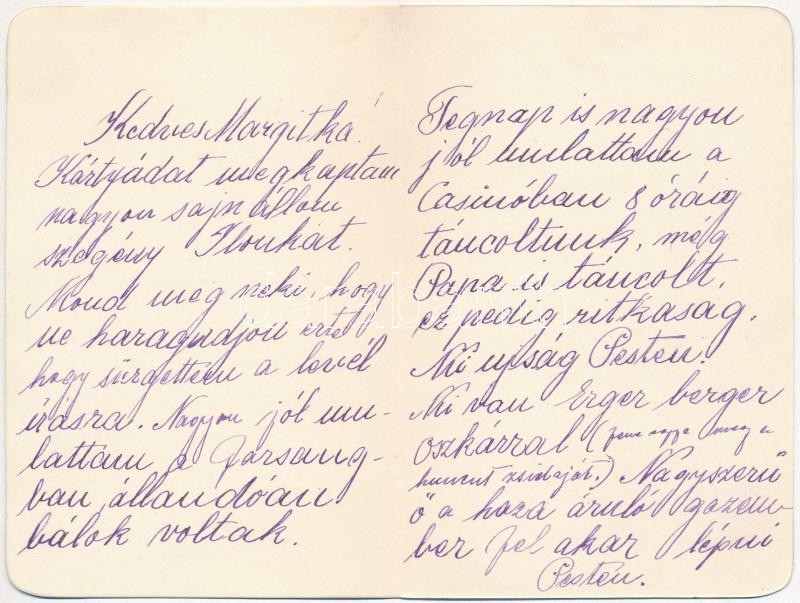 Kedves Margitka!
Kártyádat megkaptam
nagyon sajnállom
szegény Ilonkát.
Mond meg neki, hogy
ne haragudjon érte
hogy sürgettem a levél
írásra. Nagyon jól mu-
lattam a farsang-
ban állandóan
bálok voltak.
Tegnap is nagyon
jól mulattam a
Casinóban 8 óráig
táncoltunk, még
Papa is táncolt,
ez pedig ritkaság.
Mi ujság Pesten?
Mi van Erger berger
oszkárral (fene egye meg a
huncut zsidaját.) Nagyszerű
ő a haza áruló gazem-
ber fel akar lépni
Pesten.